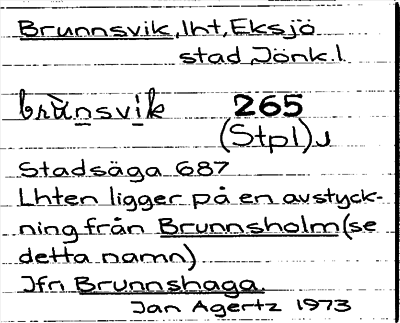 Brunnsvik, lht, Eksjö
stad, Jönk.l.
brùnsvik 265
(Stpl)J
Stadsäga 687
Lhten ligger på en avstyck-
ning från Brunnsholm (se
detta namn)
Jfr Brunnshaga.
Jan Agertz 1973